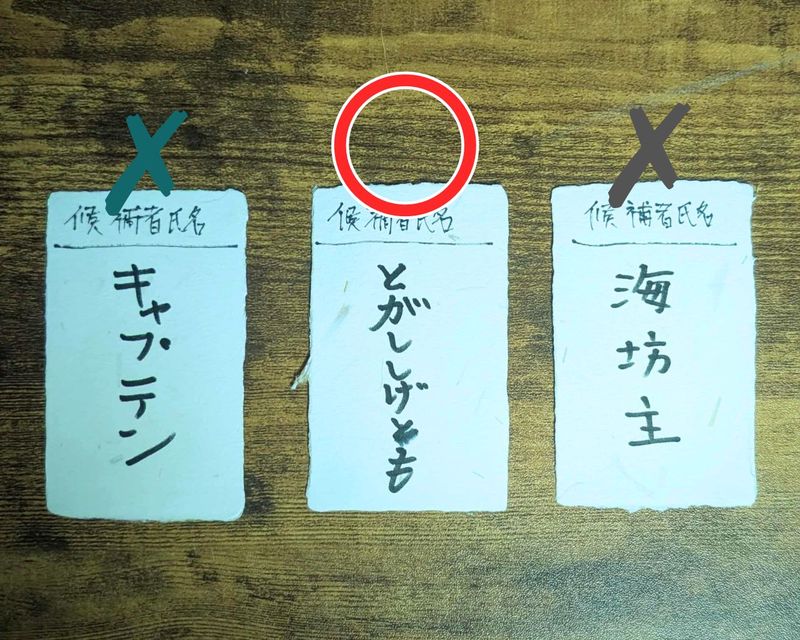 候補者氏名
キャプテン
候補者氏名
とがししげとも
候補者氏名
海坊主